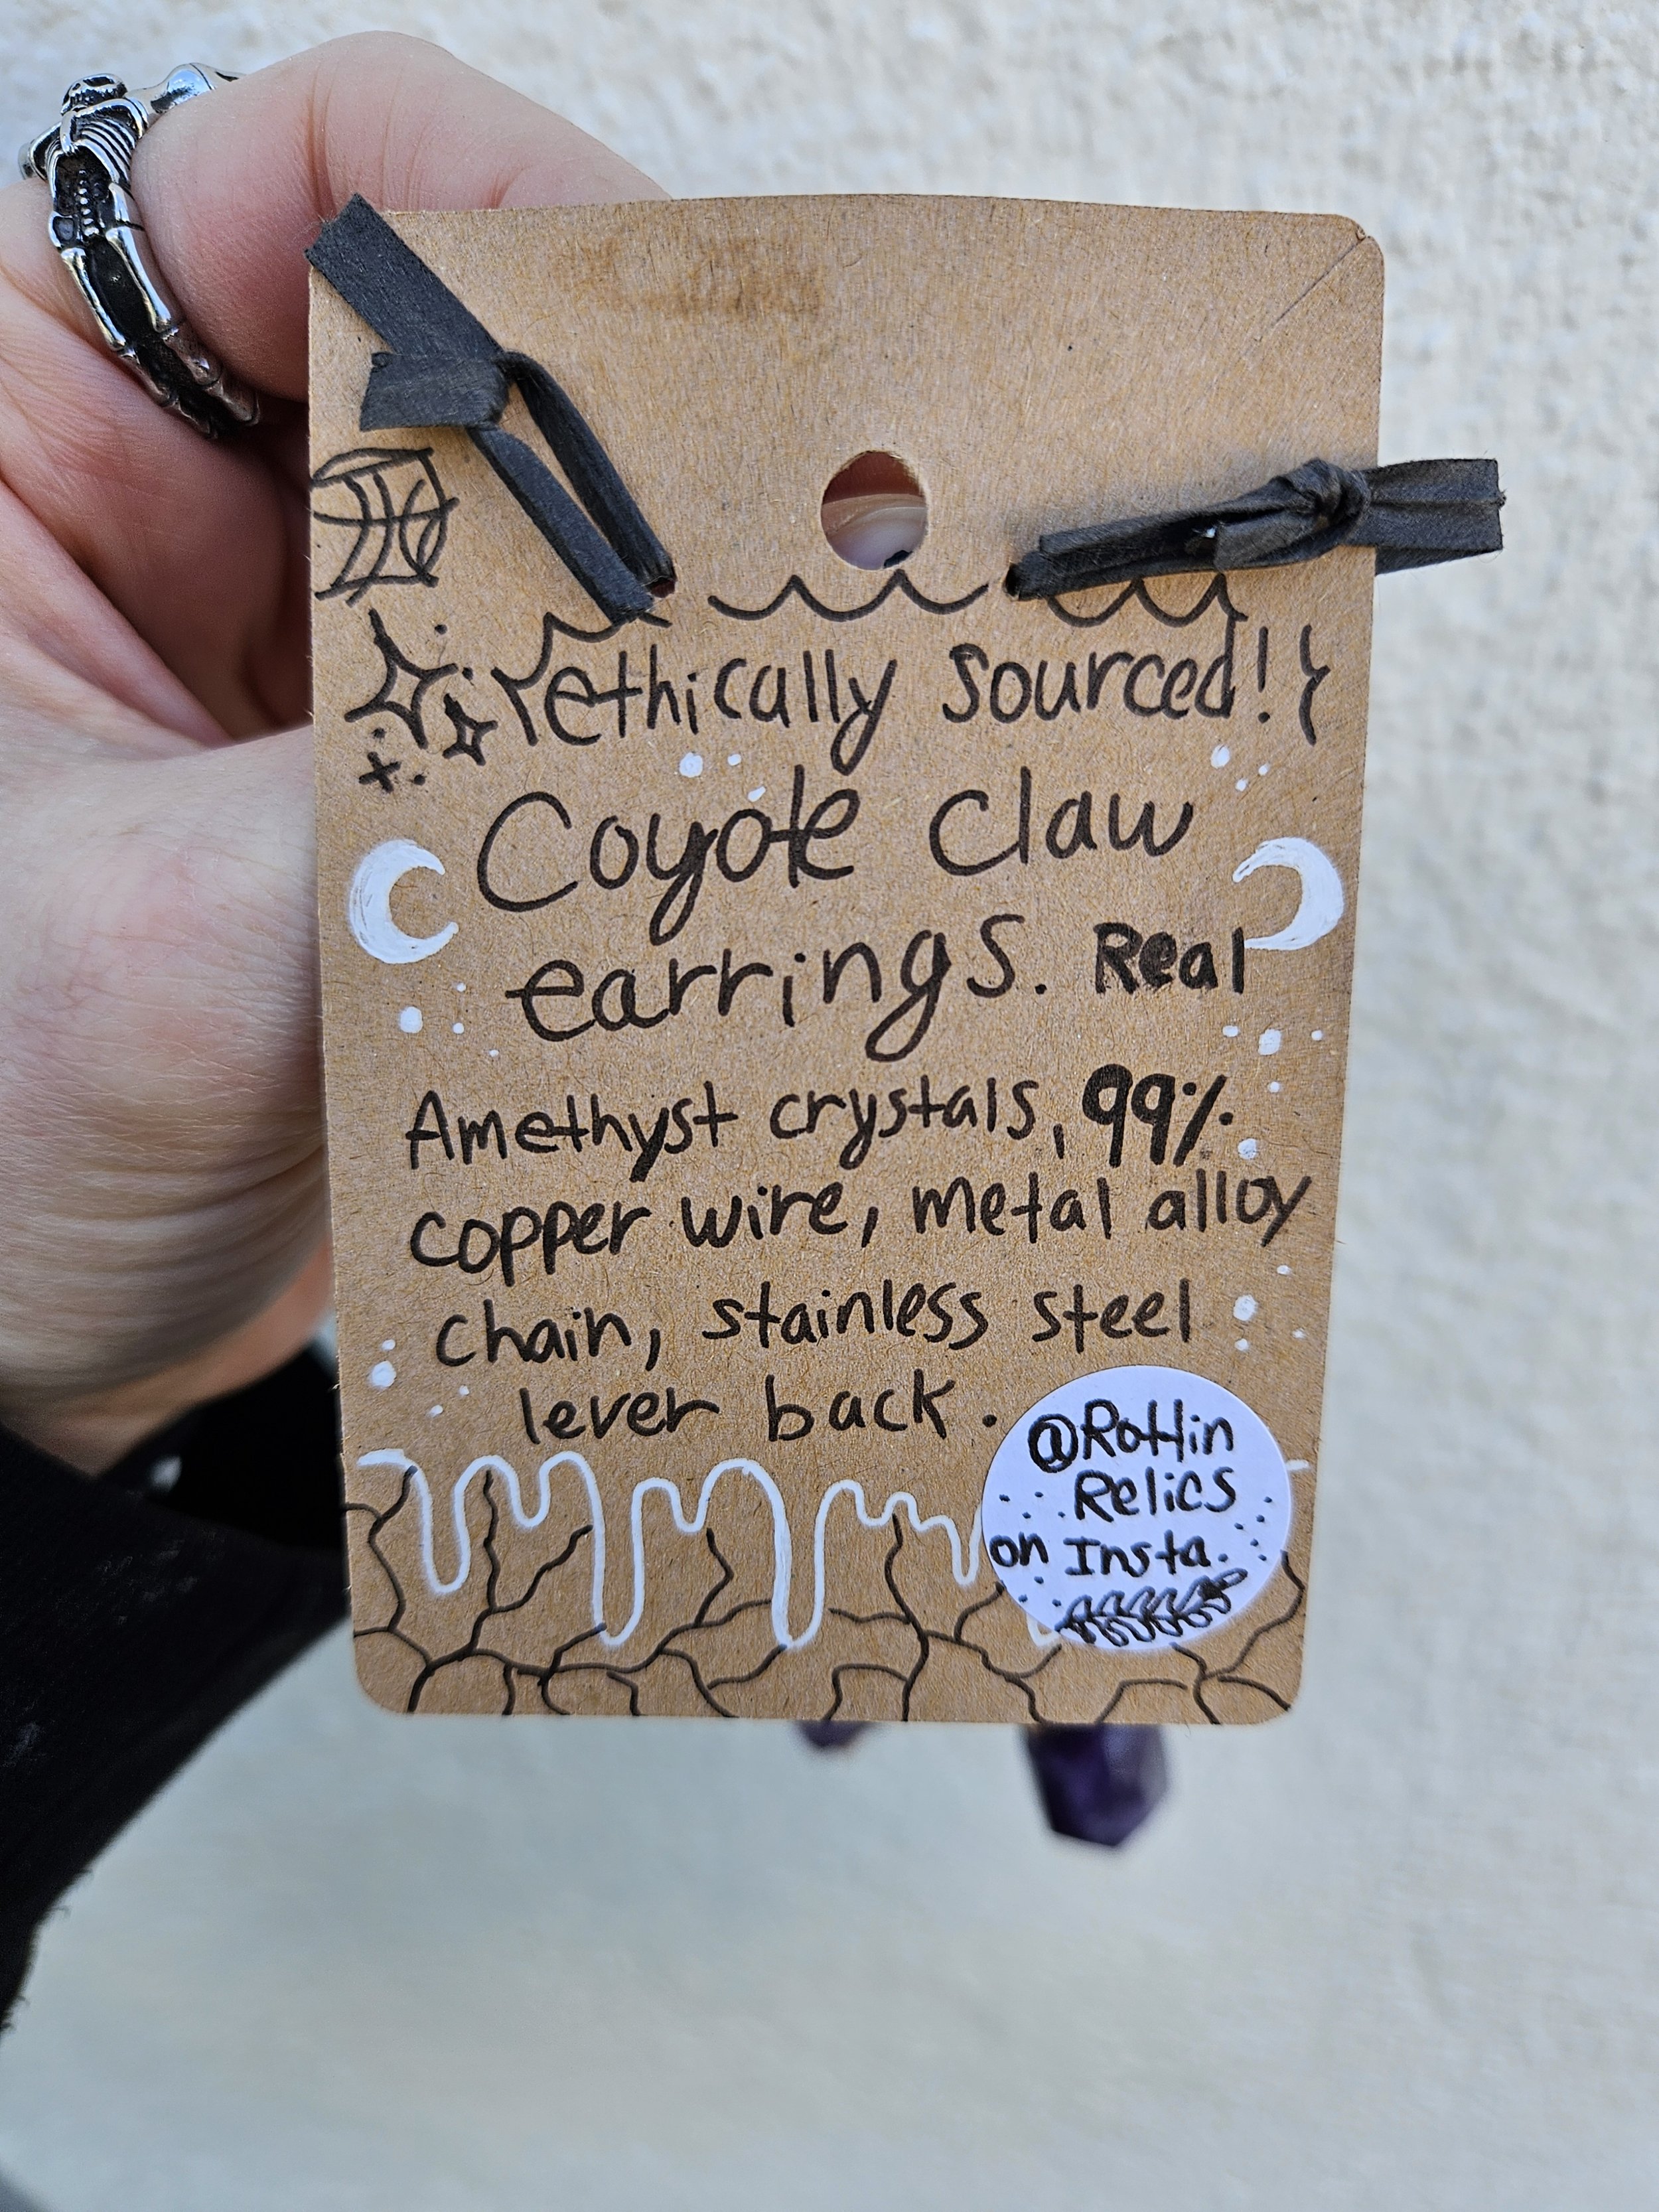 ethically sourced!
Coyote claw
earrings. Real
Amethyst crystals, 99%
copper wire, metal alloy
chain, stainless steel
lever back.
@Rottin
Relics
on Insta.